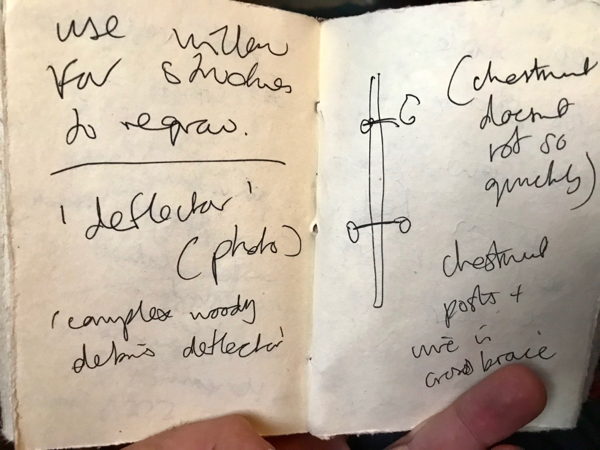 use willow
for stucks
to regrow.
'deflector'
(photo)
'complex woody
debris deflector'
(chestnut
doesnt
rot so
quickly)
chestnut
posts +
wire in
cross brace